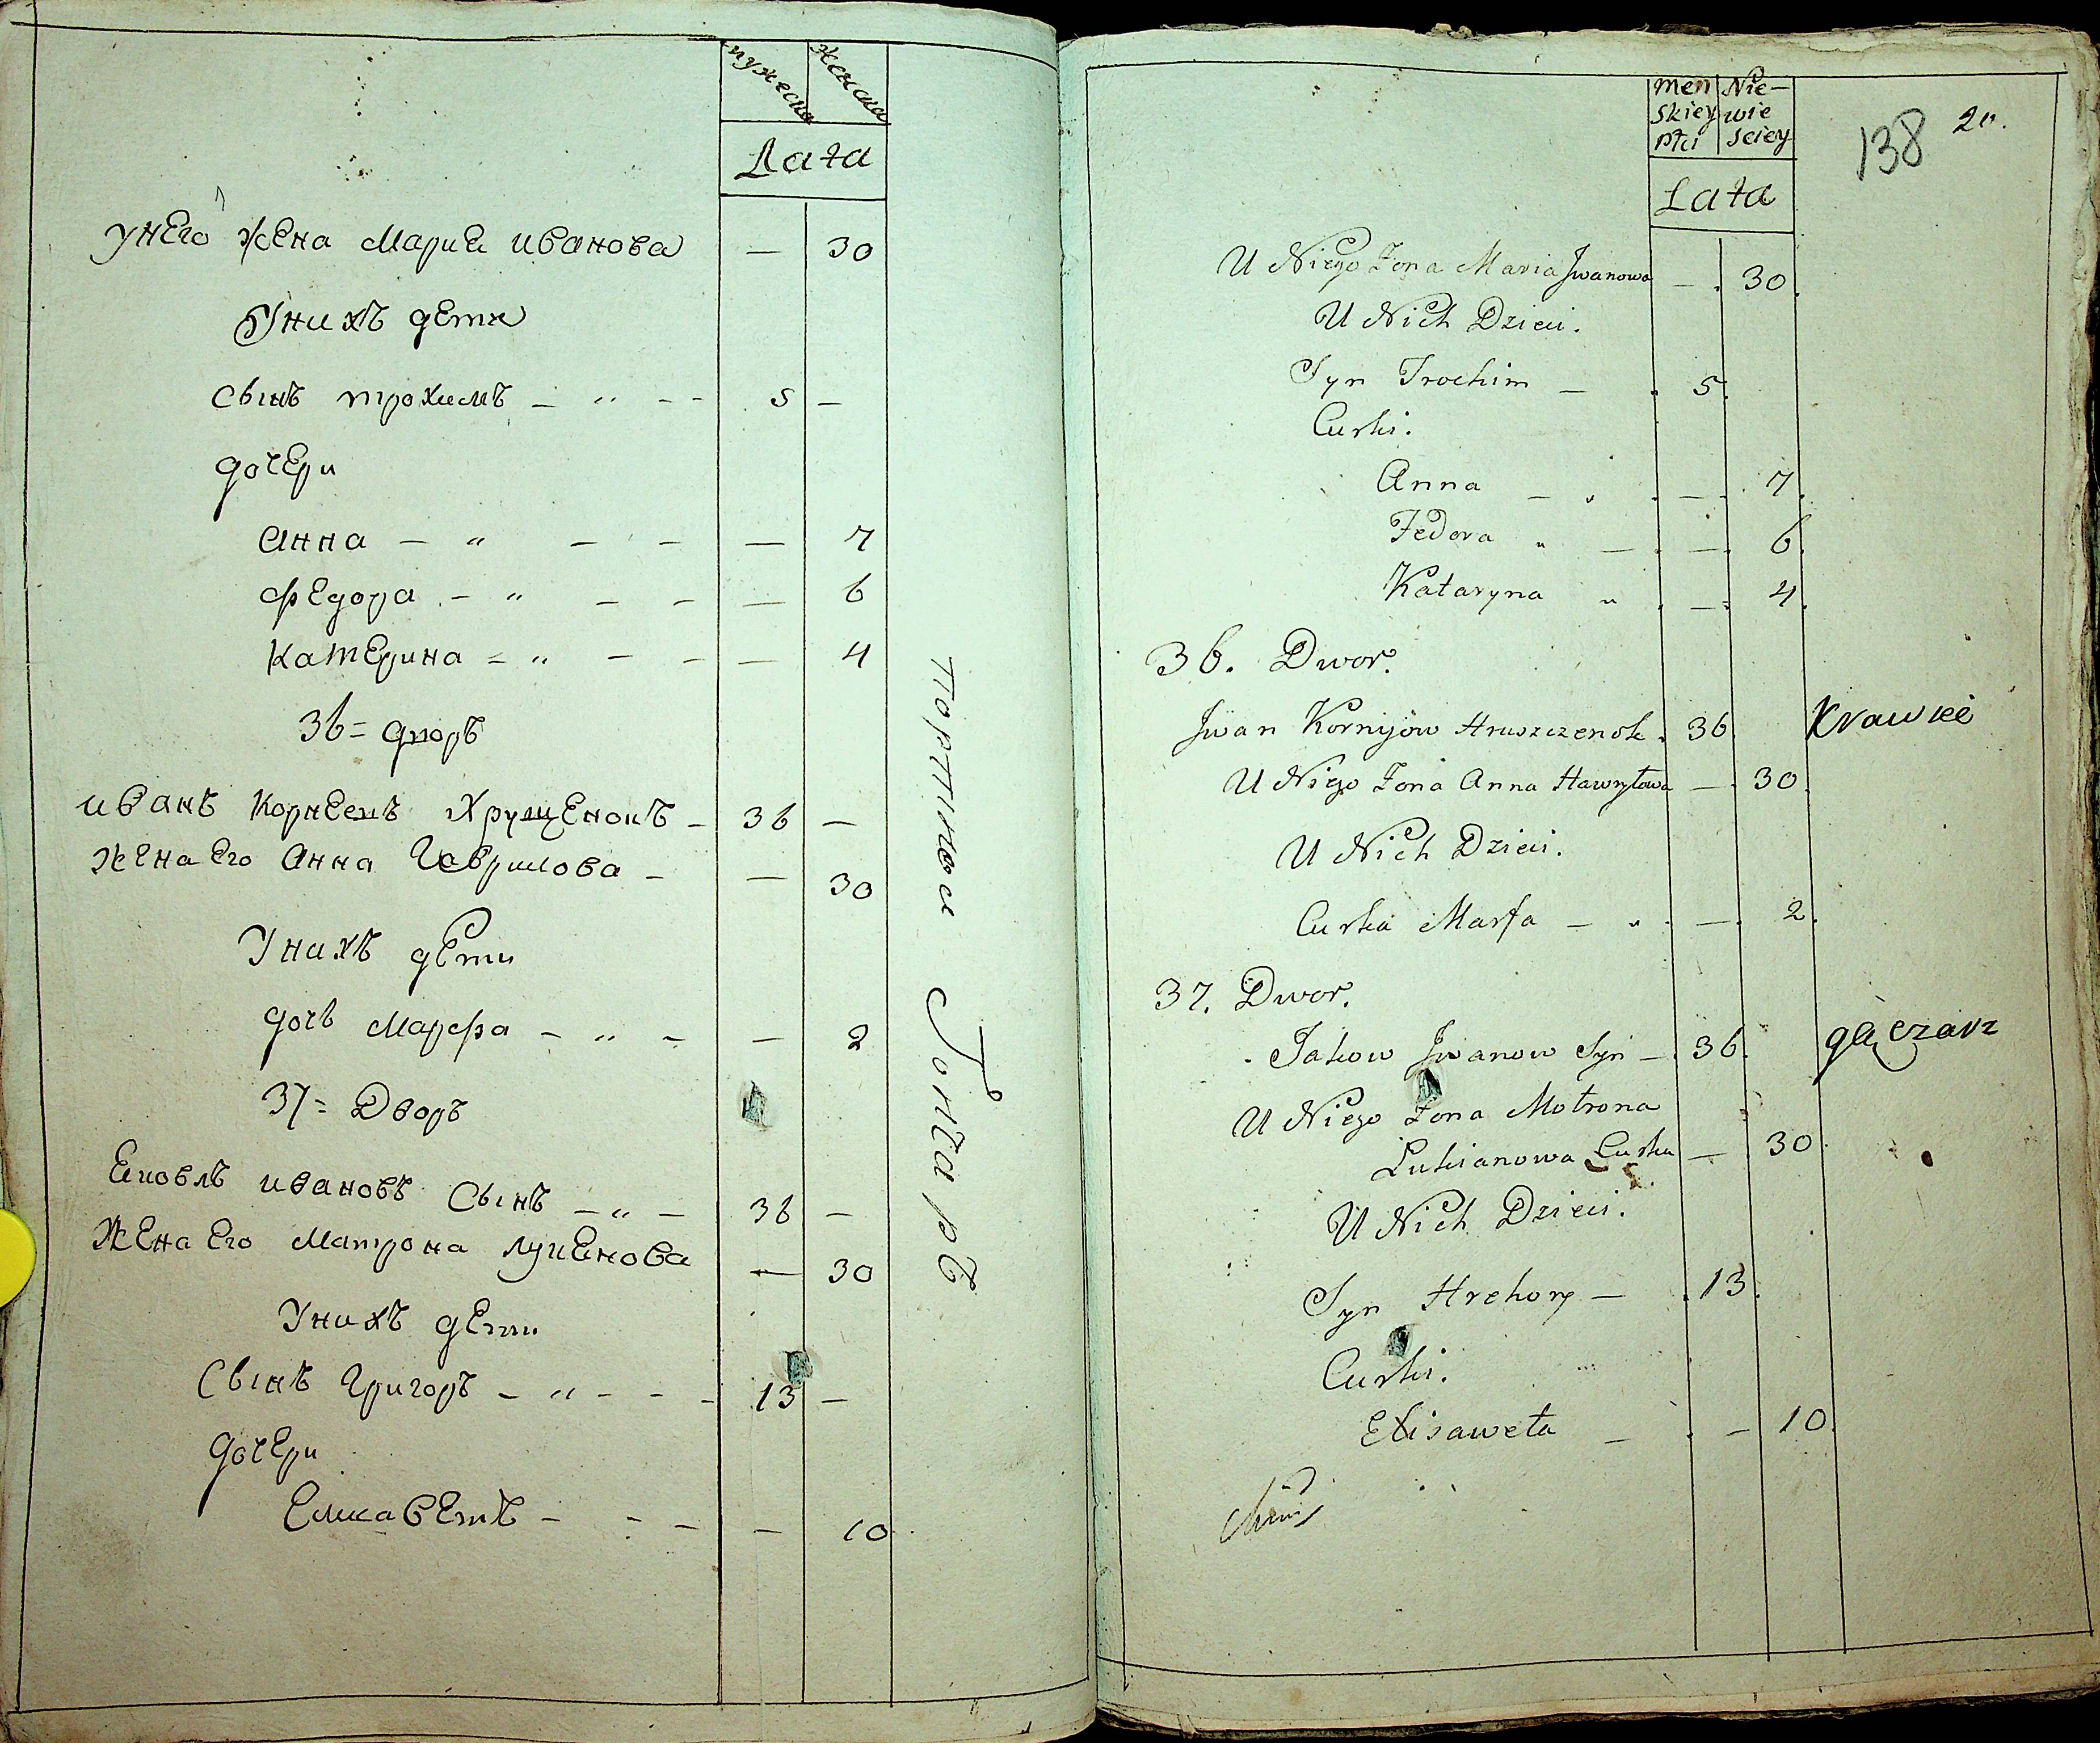 мужеска женска
Лата
унего жена Марие иванова — 30
Унихъ дети
Сынъ трохимъ — „ — — 5 —
дочери
Анна — „ — — — 7
федора — „ — — — 6
Катерина — „ — — — 4
36 = дворъ
иванъ Корнеевъ Хрущенокъ — 36 —
жена его Анна Гаврилова — — 30
Унихъ дети
дочь Марфа — „ — — 2
37 = Дворъ
Яковлъ ивановъ Сынъ — „ — 36 —
Жена его Матрона лукянова — 30
Унихъ дети
Сынъ Григоръ — „ — — — 13 —
дочери
Елисаветъ — — — — 10
портной
Гончаръ
men skiey płci Nie- wie sciey
Lata
138 20.
U Niego Żona Maria Jwanowa — . 30.
U Nich Dzieci.
Syn Trochim — . 5.
Curki.
Anna — „ . — . 7.
Fedora „ — . — . 6.
Kataryna „ . — . 4.
36. Dwor.
Jwan Kornijów Hruszczenok . 36. Krawiec
U Niego Żona Anna Hawryłowa — . 30.
U Nich Dzieci.
Curka Marfa — „ . — . 2.
37. Dwor.
Jakow Jwanow Syn — . 36.
U Niego Żona Motrona
Lukianowa Curka — . 30
U Nich Dzieci.
Syn Hrehory — . 13.
Curki.
Elisaweta — . — 10.